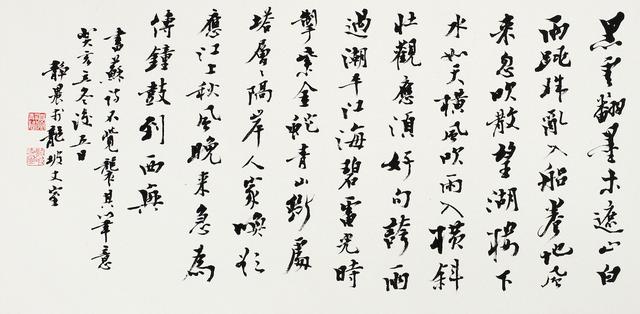 黑雲翻墨未遮山白
雨跳珠亂入船卷地風
来忽吹散望湖樓下
水如天橫風吹雨入樓斜
壯觀應須好句誇雨
過潮平江海碧電光時
掣紫金蛇青山斷處
塔層々隔岸人家喚欲
應江上秋風晚来急為
傳鐘鼓到西興
書蘇詩不覺襲其筆意
癸亥立冬後五日
靜農於龍坡丈室